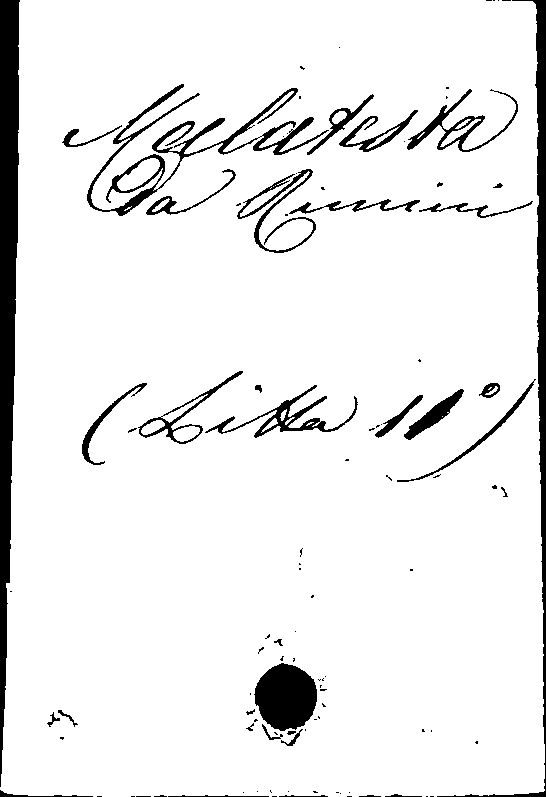 Malatesta
Da Rimini
(Litta 11°)